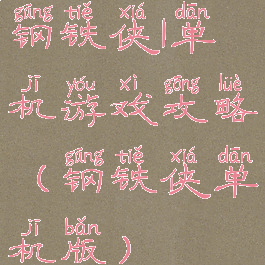 gāng tiě xiá dān
钢铁侠|单
jī yóu xì gōng lüè
机游戏攻略
gāng tiě xiá dān
(钢铁侠单
jī bǎn
机版)